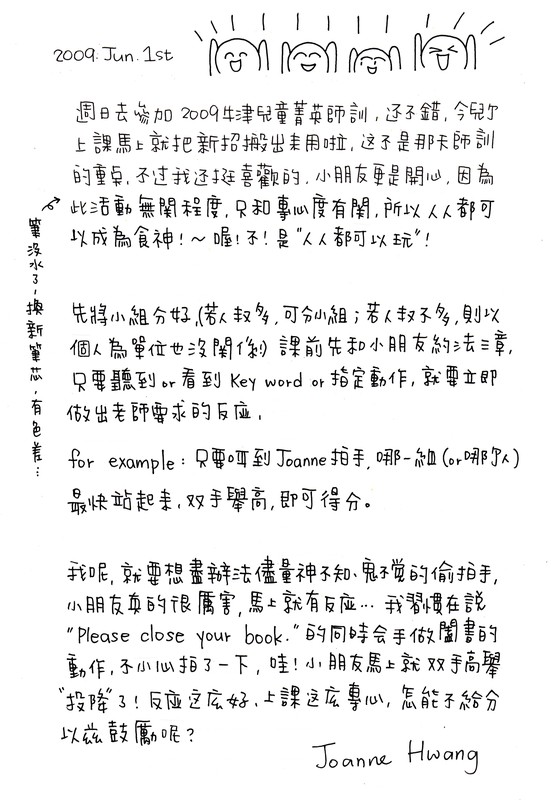 2009. Jun. 1st
週日去參加 2009牛津兒童菁英師訓, 还不錯, 今兒个
上課馬上就把新招搬出來用啦, 这不是那天師訓
的重点, 不过我还挺喜歡的, 小朋友更是開心, 因為
此活動無関程度, 只和專心度有関, 所以人人都可
以成為食神!～喔!不!是"人人都可以玩"!
筆没水了, 換新筆芯, 有色差...
先將小組分好, (若人数多, 可分小組; 若人数不多, 則以
個人為單位也没関係) 課前先和小朋友約法三章,
只要聽到 or 看到 Key word or 指定動作, 就要立即
做出老師要求的反应,
for example: 只要听到 Joanne 拍手, 哪一組 (or 哪个人)
最快站起來, 双手舉高, 即可得分。
我呢, 就要想盡辦法儘量神不知、鬼不覺的偷拍手,
小朋友真的很厲害, 馬上就有反应... 我習慣在說
"Please close your book." 的同時会手做闔書的
動作, 不小心拍了一下, 哇! 小朋友馬上就双手高舉
"投降"了! 反应这広好, 上課这広專心, 怎能不給分
以茲鼓勵呢?
Joanne Hwang